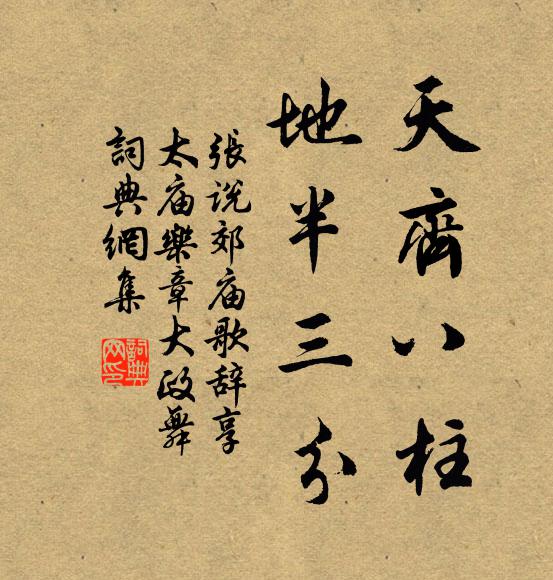 天齊八柱
地半三分
張说郊庙歌辞享
太庙樂章大政舞
詞典網集
詞典
网印